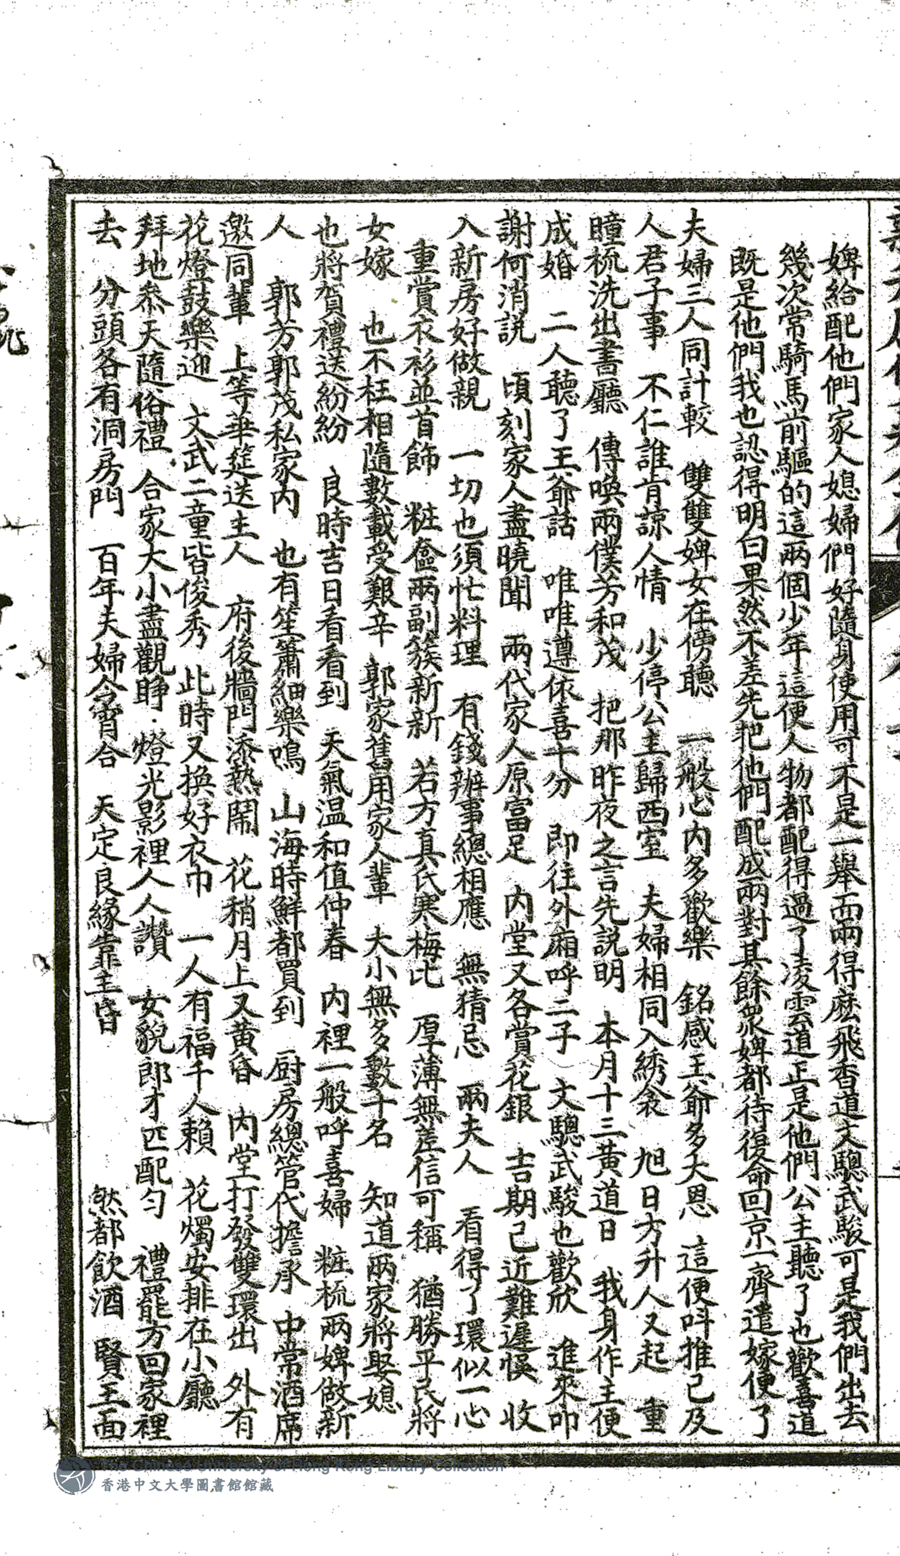 婢給配他們家人媳婦們好隨身使用可不是一舉而兩得麽飛香道文驄武駿可是我們出去
幾次常騎馬前驅的這兩個少年這便人物都配得過了凌雲道正是他們公主聽了也歡喜道
既是他們我也認得明白果然不差先把他們配成兩對其餘衆婢都待復命回京一齊遣嫁便了
夫婦三人同計較 雙雙婢女在傍聽 一般心內多歡樂 銘感王爺多大恩 這便呌推己及
人君子事 不仁誰肯諒人情 少停公主歸西室 夫婦相同入綉衾 旭日方升人又起 重
瞳梳洗出書廳 傳喚兩僕芳和茂 把那昨夜之言先說明 本月十三黃道日 我身作主便
成婚 二人聽了王爺話 唯唯遵依喜十分 即往外廂呼二子 文驄武駿也歡欣 進來叩
謝何消說 頃刻家人盡曉聞 兩代家人原富足 內堂又各賞花銀 吉期已近難遲悞 收
入新房好做親 一切也須忙料理 有錢辦事總相應 無猜忌 兩夫人 看得了環似一心
重賞衣衫並首飾 粧奩兩副簇新新 若方真氏寒梅比 厚薄無差信可稱 猶勝平民將
女嫁 也不枉相隨數載受艱辛 郭家舊用家人輩 大小無多數十名 知道兩家將娶媳
也將賀禮送紛紛 良時吉日看看到 天氣温和值仲春 內裡一般呼喜婦 粧梳兩婢做新
人 郭芳郭茂私家內 也有笙簫細樂鳴 山海時鮮都買到 厨房總管代擔承 中常酒席
邀同輩 上等華筵送主人 府後牆門添熱鬧 花稍月上又黃昏 內堂打發雙環出 外有
花燈鼓樂迎 文武二童皆俊秀 此時又換好衣巾 一人有福千人賴 花燭安排在小廳
拜地叅天隨俗禮 合家大小盡觀睁 燈光影裡人人讚 女貌郎才匹配勻 禮罷方回家裡
去 分頭各有洞房門 百年夫婦今宵合 天定良緣靠主昏 然都飲酒 賢王面
香港中文大學圖書館館藏